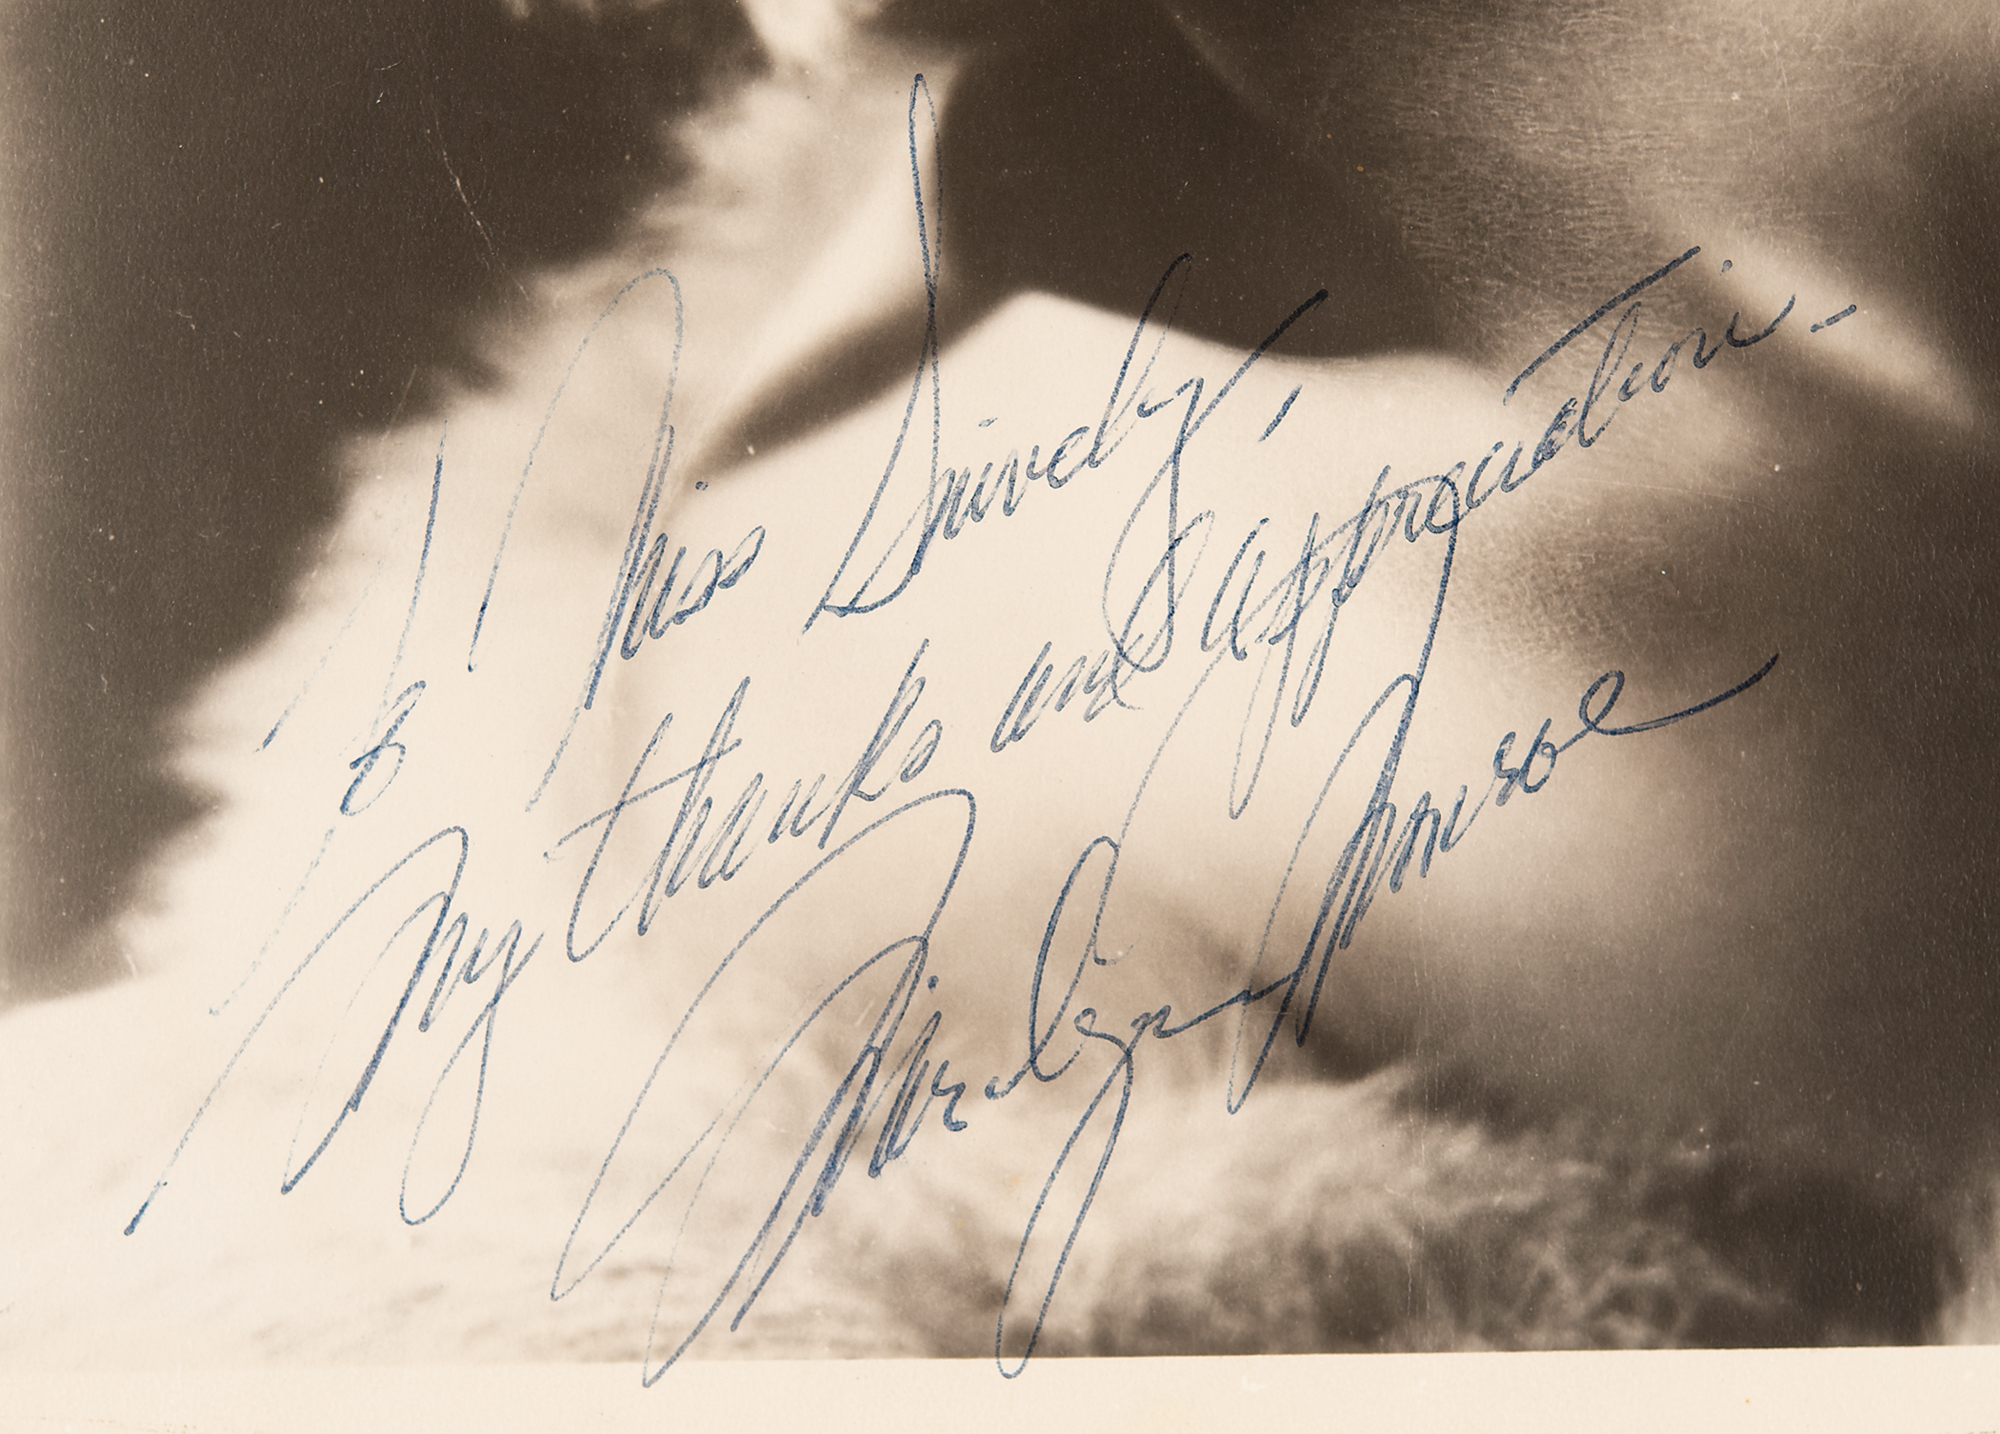 To Miss Snively,
My thanks and appreciation —
Marilyn Monroe